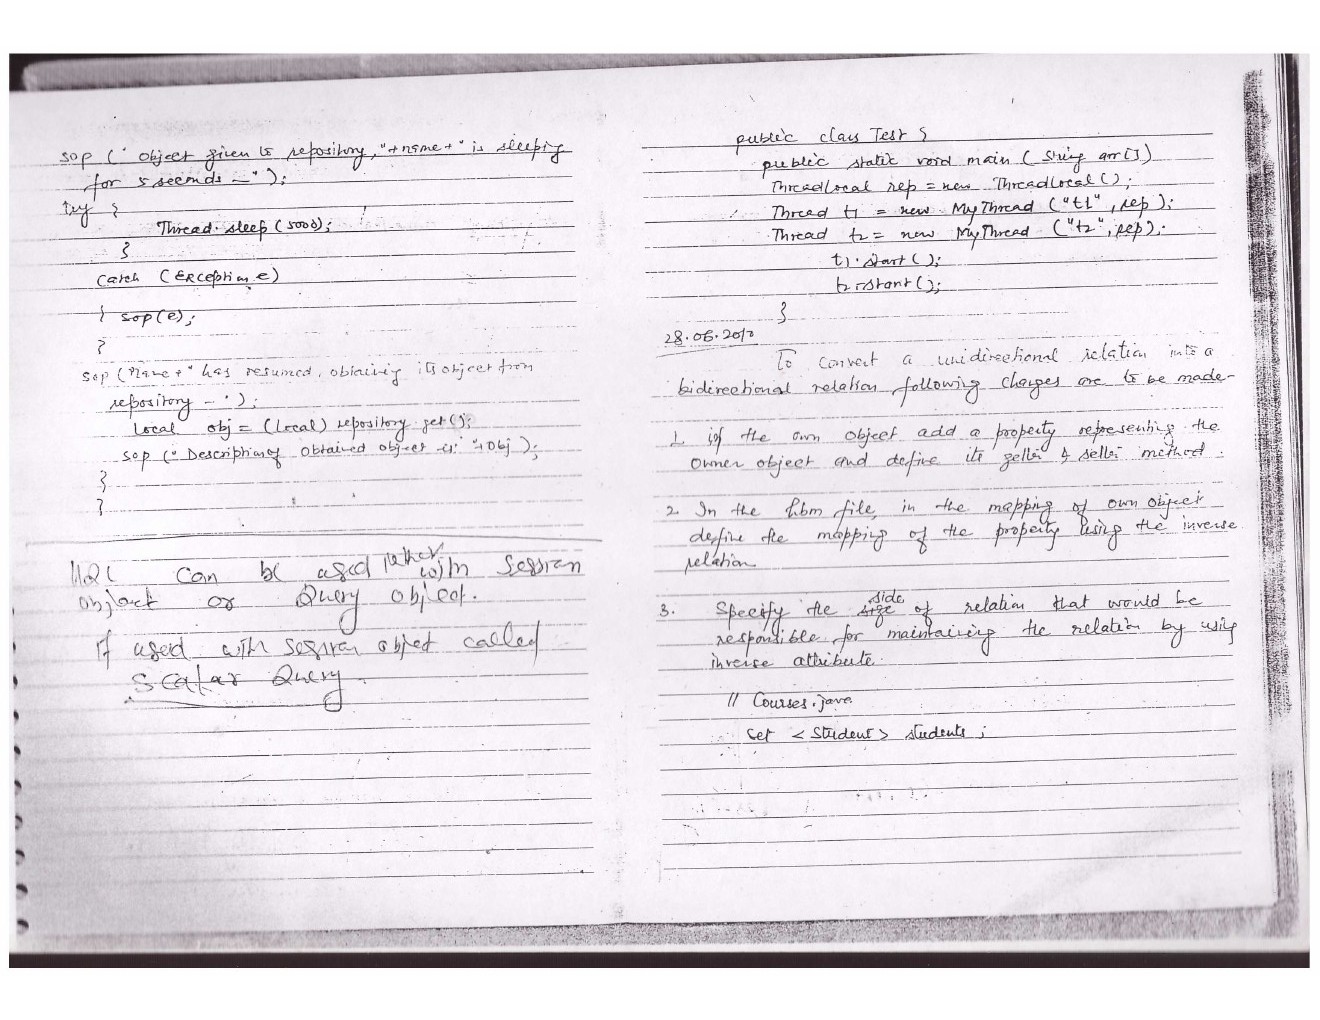 sop (" object given to repository, "+name+" is sleeping
for 5 seconds -");
try {
Thread.sleep (5000);
}
catch (Exception e)
{ sop(e);
}
sop (name+" has resumed, obtaining its object from
repository - ");
Local obj = (Local) repository.get();
sop (" Description of obtained object is: "+obj );
}
}
HQL can be used either with Session
object or Query object.
If used with session object called
Scalar Query.
public class Test {
public static void main (String arr[])
ThreadLocal rep = new ThreadLocal();
Thread t1 = new MyThread ("t1", rep);
Thread t2 = new MyThread ("t2", rep);
t1.start();
t2.start();
}
28.06.2010
To convert a unidirectional relation into a
bidirectional relation following changes are to be made-
1. in the own object add a property representing the
owner object and define its getter & setter method.
2. In the hbm file, in the mapping of own object
define the mapping of the property using the inverse
relation
3. Specify the side of relation that would be
responsible for maintaining the relation by using
inverse attribute.
// Courses.java
Set <Student> students ;